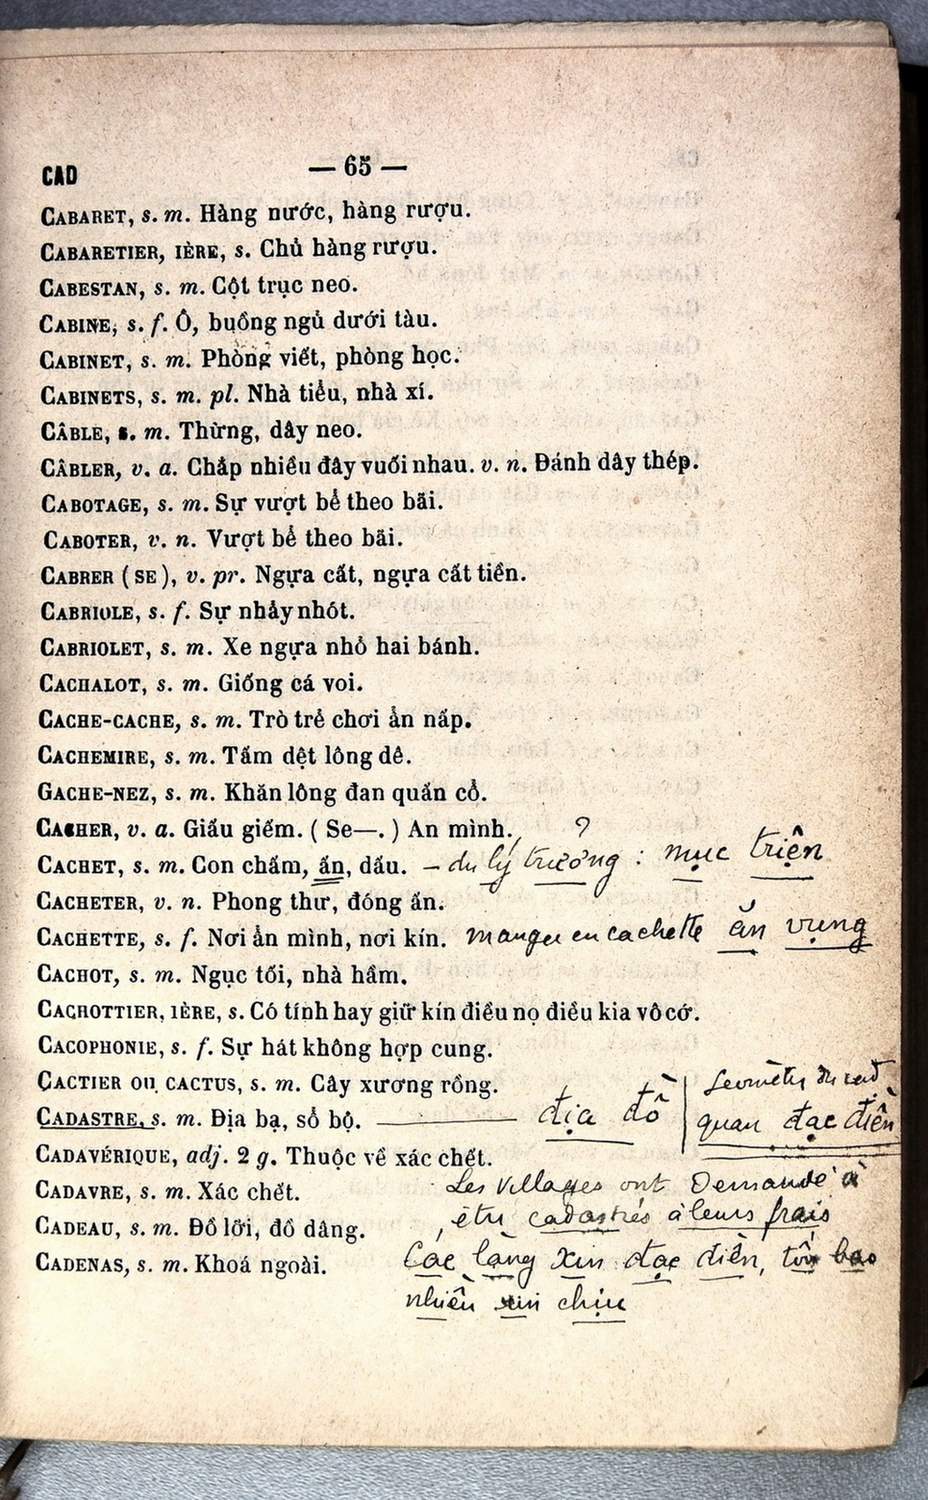 CAD — 65 —
CABARET, s. m. Hàng nước, hàng rượu.
CABARETIER, IÈRE, s. Chủ hàng rượu.
CABESTAN, s. m. Cột trục neo.
CABINE, s. f. Ô, buồng ngủ dưới tàu.
CABINET, s. m. Phòng viết, phòng học.
CABINETS, s. m. pl. Nhà tiểu, nhà xí.
CÂBLE, s. m. Thừng, dây neo.
CÂBLER, v. a. Chắp nhiều đây vuối nhau. v. n. Đánh dây thép.
CABOTAGE, s. m. Sự vượt bể theo bãi.
CABOTER, v. n. Vượt bể theo bãi.
CABRER (SE), v. pr. Ngựa cất, ngựa cất tiền.
CABRIOLE, s. f. Sự nhảy nhót.
CABRIOLET, s. m. Xe ngựa nhỏ hai bánh.
CACHALOT, s. m. Giống cá voi.
CACHE-CACHE, s. m. Trò trẻ chơi ẩn nấp.
CACHEMIRE, s. m. Tấm dệt lông dê.
GACHE-NEZ, s. m. Khăn lông đan quấn cổ.
CACHER, v. a. Giấu giếm. (Se—.) An mình. ?
CACHET, s. m. Con chấm, ấn, dấu. — du lý trưởng : mục triện
CACHETER, v. n. Phong thư, đóng ấn.
CACHETTE, s. f. Nơi ẩn mình, nơi kín. manger en cachette ăn vụng
CACHOT, s. m. Ngục tối, nhà hầm.
CACHOTTIER, IÈRE, s. Có tính hay giữ kín điều nọ điều kia vô cớ.
CACOPHONIE, s. f. Sự hát không hợp cung.
CACTIER OU CACTUS, s. m. Cây xương rồng.
CADASTRE, s. m. Địa bạ, sổ bộ. — địa đồ
Géomètre du cad.
quan đạc điền
CADAVÉRIQUE, adj. 2 g. Thuộc về xác chết.
CADAVRE, s. m. Xác chết. Les villages ont demandé à
CADEAU, s. m. Đồ lỡi, đồ dâng. être cadastrés à leurs frais
CADENAS, s. m. Khoá ngoài. Các làng xin đạc điền, tốn bao
nhiêu xin chịu